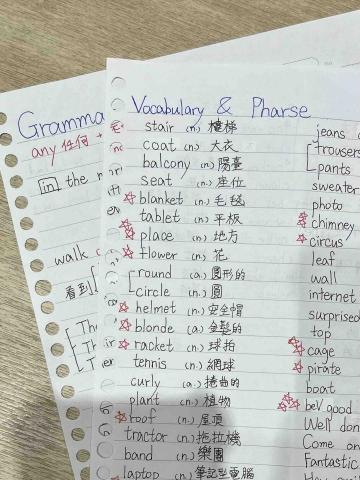 Gramma
any 任何 +
in the mor
walk
看到
Th
Th
Th
Vocabulary & Pharse
stair (n.) 樓梯
coat (n.) 大衣
balcony (n.) 陽臺
seat (n.) 座位
blanket (n.) 毛毯
tablet (n.) 平板
place (n.) 地方
flower (n.) 花
round (a.) 圓形的
circle (n.) 圓
helmet (n.) 安全帽
blonde (a.) 金髮的
racket (n.) 球拍
tennis (n.) 網球
curly (a.) 捲曲的
plant (n.) 植物
roof (n.) 屋頂
tractor (n.) 拖拉機
band (n.) 樂團
laptop (n.) 筆記型電腦
jeans
trousers
pants
sweater
photo
chimney
circus
leaf
wall
internet
surprised
top
cage
pirate
boat
be good
Well don
Come on
Fantastic